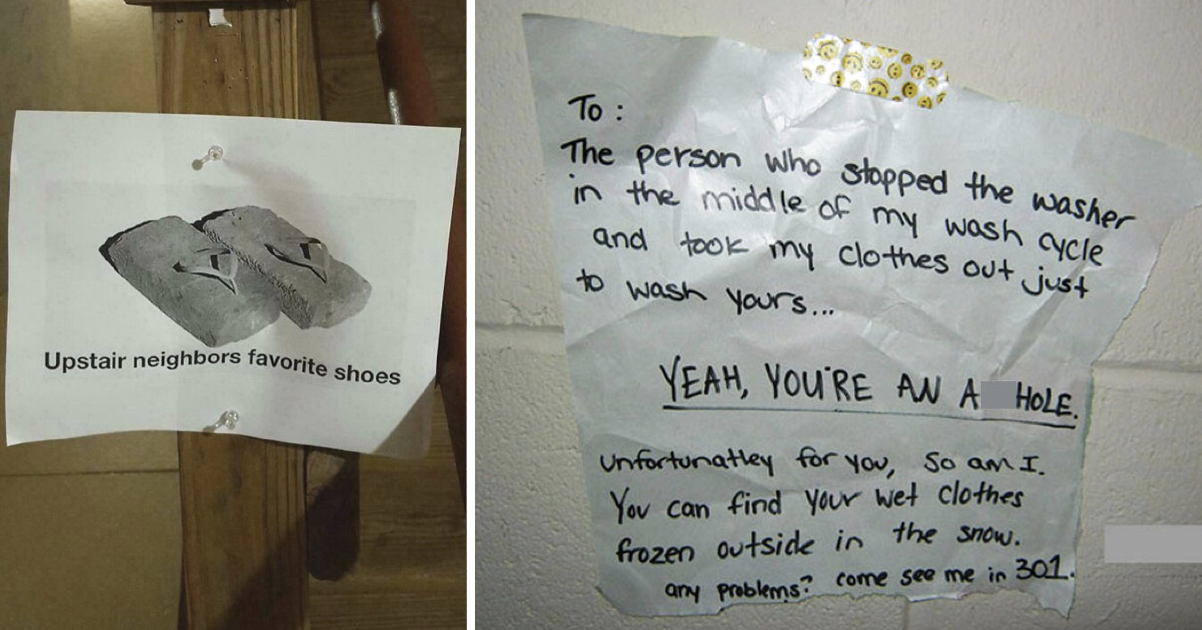 Upstair neighbors favorite shoes
To:
The person who stopped the washer
in the middle of my wash cycle
and took my clothes out just
to wash yours...
YEAH, YOU'RE AN A HOLE.
Unfortunatley for you, so am I.
You can find your wet clothes
frozen outside in the snow.
any problems? come see me in 301.